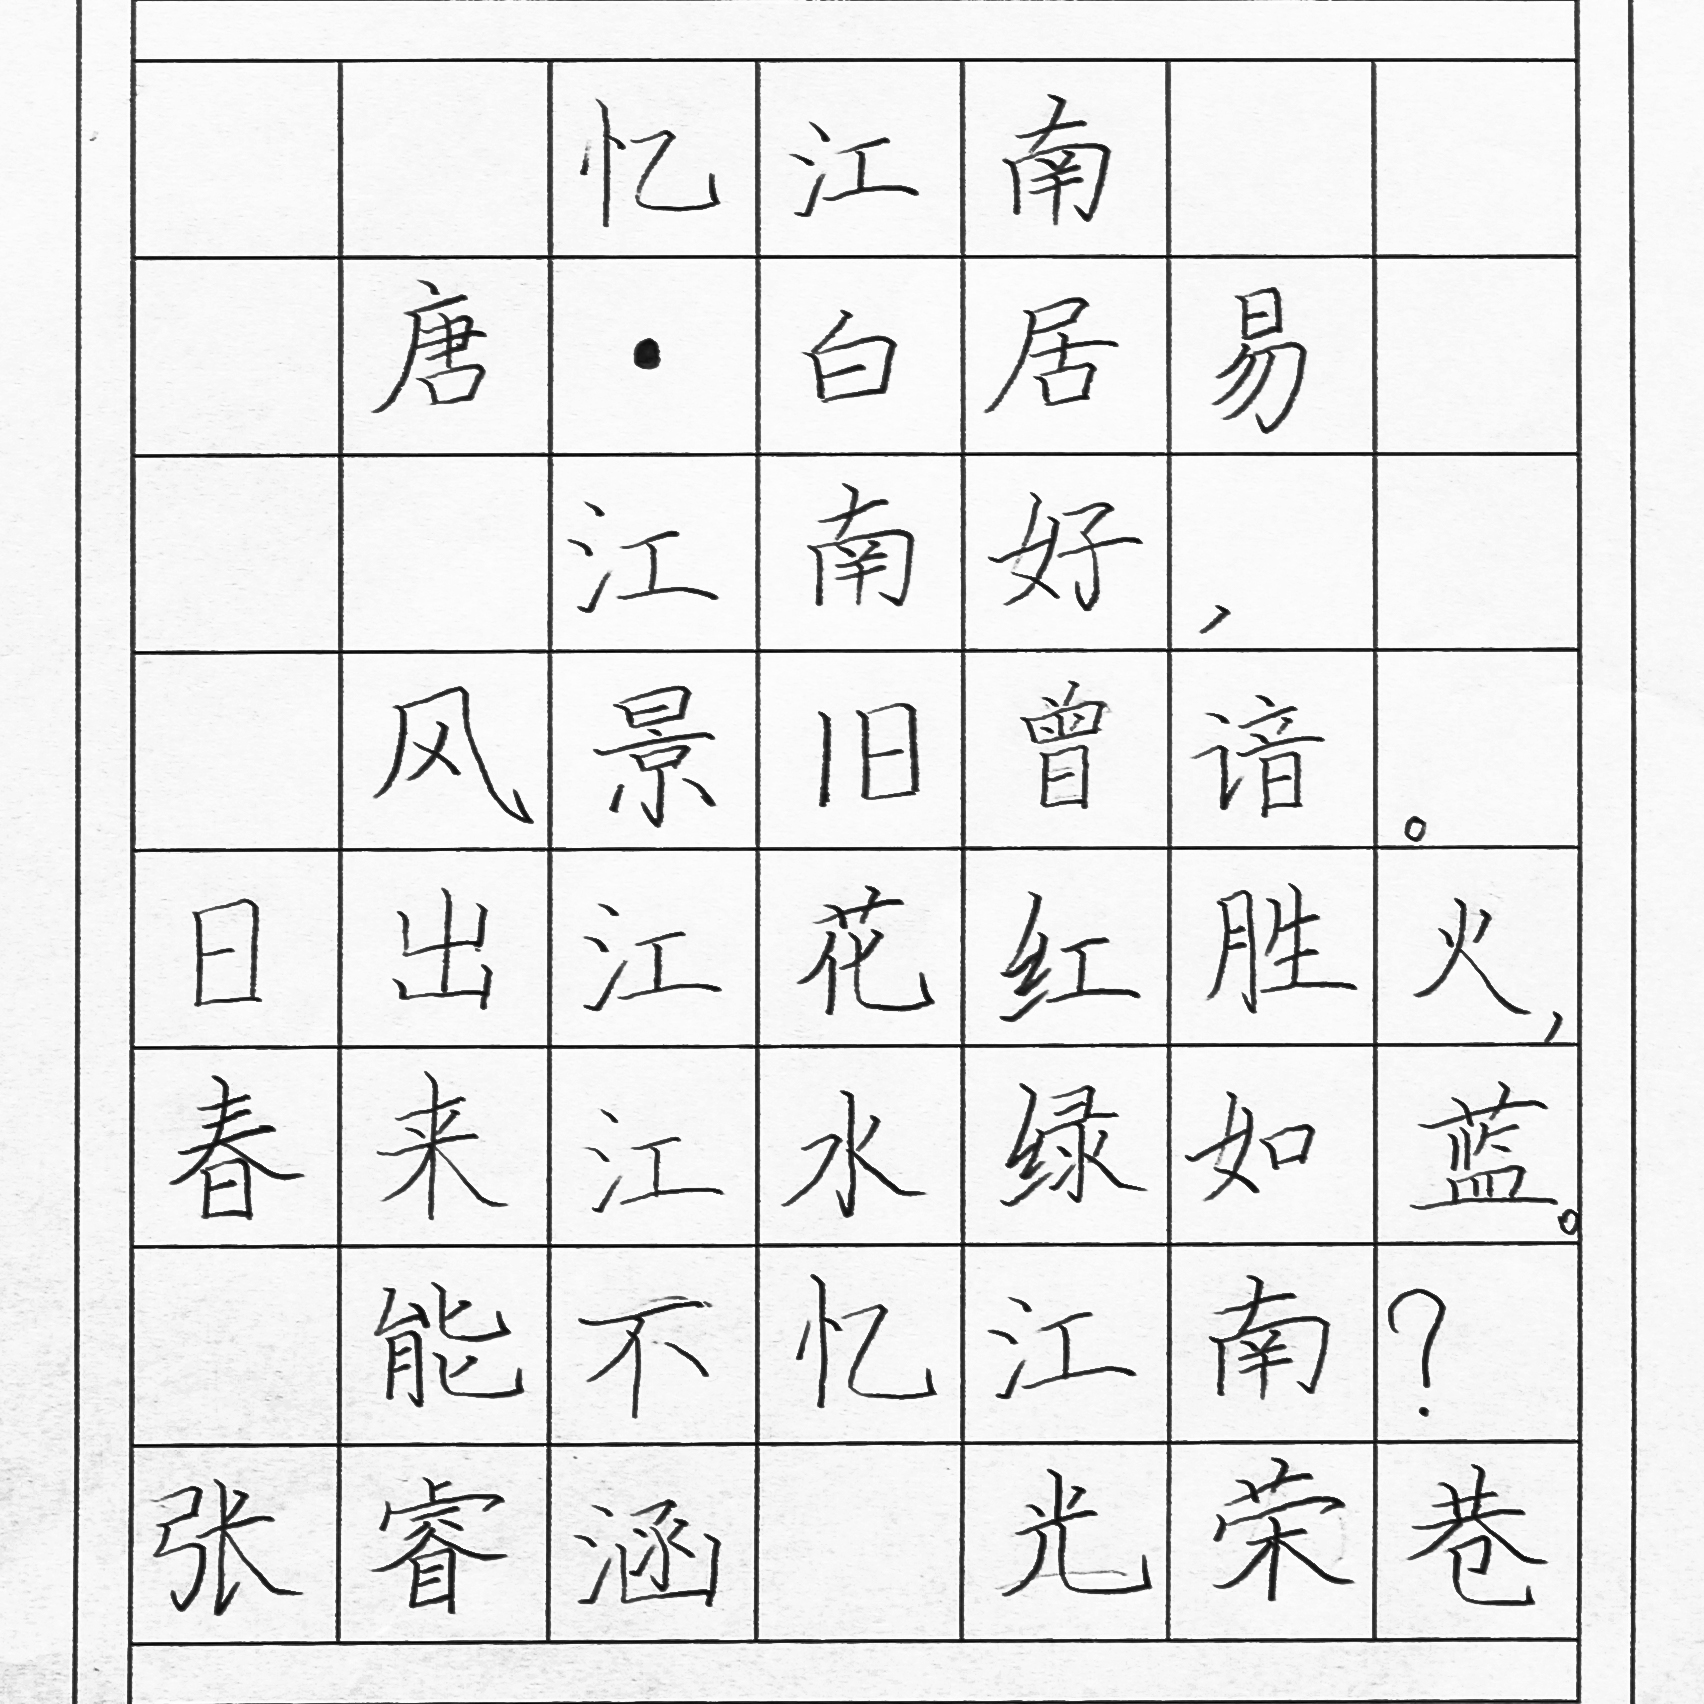 忆江南
唐·白居易
江南好，
风景旧曾谙。
日出江花红胜火，
春来江水绿如蓝。
能不忆江南？
张睿涵 光荣巷